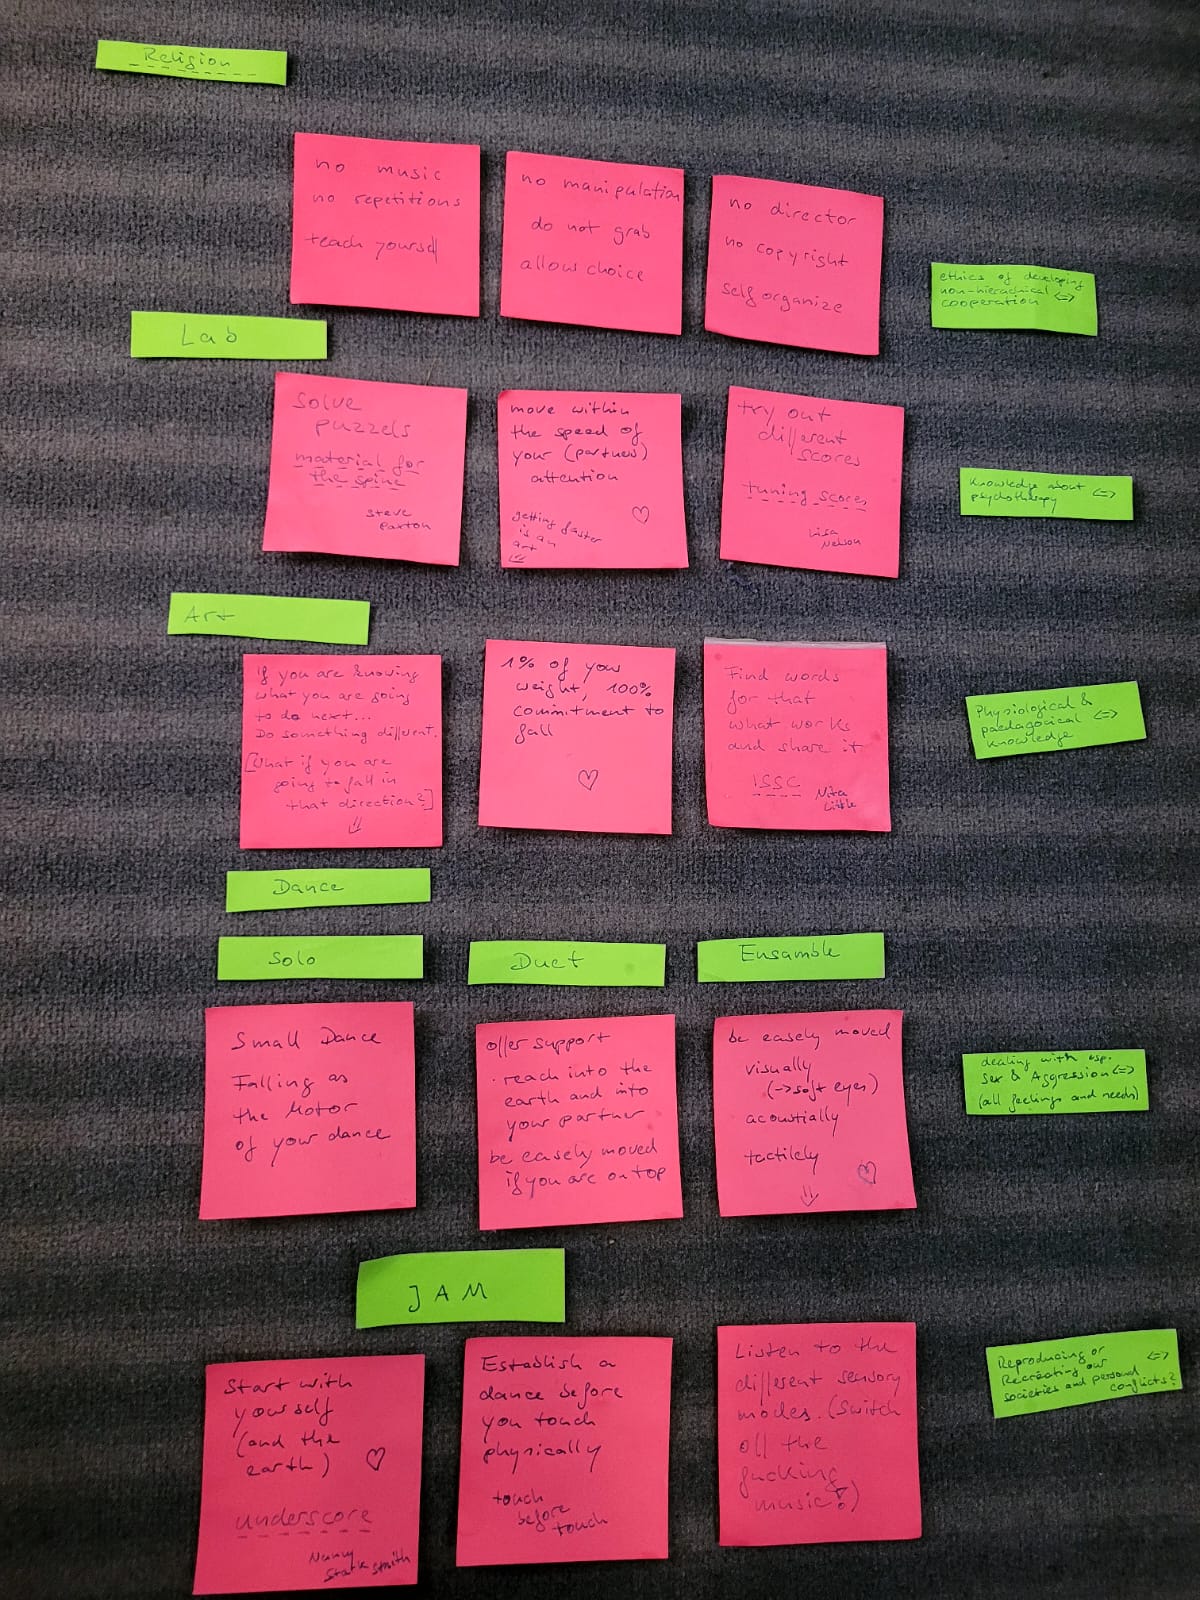 Religion
no music
no repetitions
teach yourself
no manipulation
do not grab
allow choice
no director
no copyright
self organize
ethics of developing
non-hierachical <=>
cooperation
Lab
solve
puzzels
material for
the spine
Steve
Paxton
move within
the speed of
your (partners)
attention
getting faster
is an
art
♡
try out
different
scores
tuning scores
Lisa
Nelson
Knowledge about <=>
psychotherapy
Art
If you are knowing
what you are going
to do next...
Do something different.
[What if you are
going to fall in
that direction?]
1% of your
weight, 100%
commitment to
fall
♡
Find words
for that
what works
and share it
ISSC
Nita
Little
Physiological &
paedagogical <=>
knowledge
Dance
Solo
Duet
Ensamble
Small Dance
Falling as
the Motor
of your dance
offer support
· reach into the
earth and into
your partner
be easely moved
if you are on top
be easely moved
visually
(->soft eyes)
acoustially
tactilely
♡
dealing with esp.
Sex & Aggression <=>
(all feelings and needs)
JAM
Start with
yourself
(and the
earth)
♡
underscore
Nancy
Stark Smith
Establish a
dance before
you touch
physically
touch
before
touch
Listen to the
different sensory
modes. (Switch
off the
fucking
music!)
Reproducing or <=>
Recreating our
societies and personal
conflicts?